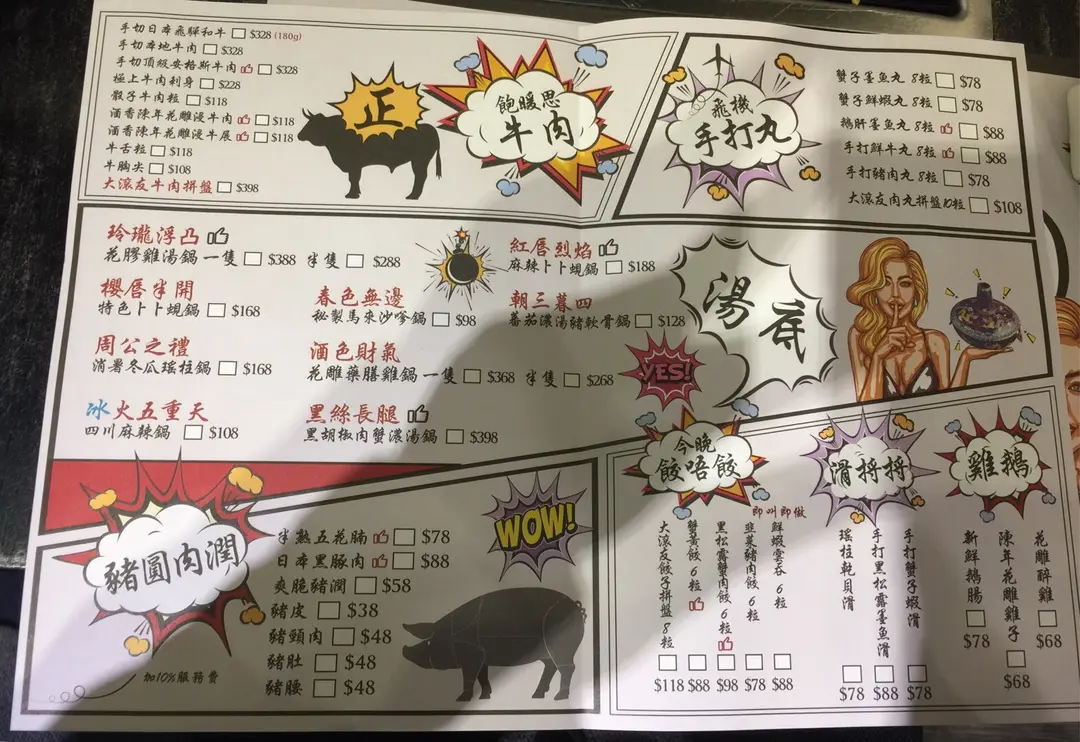 手切日本飛驒和牛 $328 (180g)
手切本地牛肉 $328
手切頂級安格斯牛肉 $328
極上牛肉刺身 $228
骰子牛肉粒 $118
酒香陳年花雕浸牛肉 $118
酒香陳年花雕浸牛展 $118
牛舌粒 $118
牛胸尖 $108
大滾友牛肉拼盤 $398
正
飽暖思
牛肉
飛機
手打丸
蟹子墨魚丸 8粒 $78
蟹子鮮蝦丸 8粒 $78
鵝肝墨魚丸 8粒 $88
手打鮮牛丸 8粒 $88
手打豬肉丸 8粒 $78
大滾友肉丸拼盤10粒 $108
玲瓏浮凸
花膠雞湯鍋 一隻 $388 半隻 $288
櫻唇半開
特色卜卜蜆鍋 $168
周公之禮
消暑冬瓜瑤柱鍋 $168
冰火五重天
四川麻辣鍋 $108
春色無邊
秘製馬來沙嗲鍋 $98
酒色財氣
花雕藥膳雞鍋 一隻 $368 半隻 $268
黑絲長腿
黑胡椒肉蟹濃湯鍋 $398
紅唇烈焰
麻辣卜卜蜆鍋 $188
朝三暮四
蕃茄濃湯豬軟骨鍋 $128
湯底
YES!
豬圓肉潤
半熟五花腩 $78
日本黑豚肉 $88
爽脆豬潤 $58
豬皮 $38
豬頸肉 $48
豬肚 $48
豬腰 $48
加10%服務費
WOW!
今晚
餃唔餃
即叫即做
大滾友餃子拼盤 8粒 $118
蟹黃餃 6粒 $88
黑松露蟹肉餃 6粒 $98
韭菜豬肉餃 6粒 $78
鮮蝦雲吞 6粒 $88
滑捋捋
瑤柱乾貝滑 $78
手打黑松露墨魚滑 $88
手打蟹子蝦滑 $78
雞鵝
新鮮鵝腸 $78
陳年花雕雞子 $68
花雕醉雞 $68